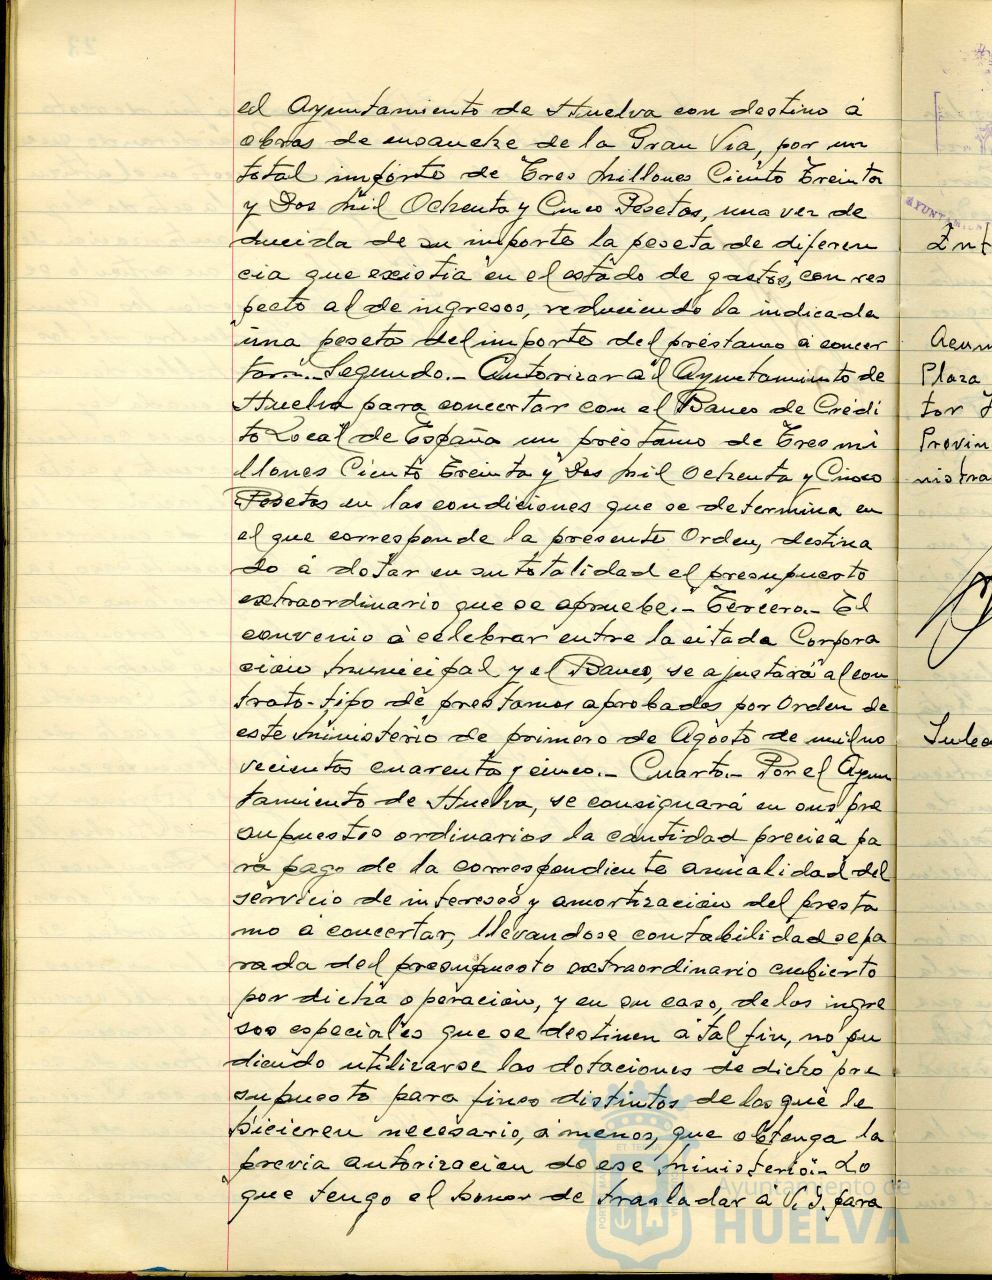 el Ayuntamiento de Huelva con destino á
obras de ensanche de la Gran Via, por un
total importe de Tres millones Ciento Treinta
y Dos mil Ochenta y Cinco Pesetas, una vez de
ducida de su importe la peseta de diferen
cia que existia en el estado de gastos, con res
pecto al de ingresos, reduciendo la indicada
una peseta del importe del préstamo á concer
tar.- Segundo.- Autorizar al Ayuntamiento de
Huelva para concertar con el Banco de Crédi
to Local de España un préstamo de Tres mi
llones Ciento Treinta y Dos mil Ochenta y Cinco
Pesetas en las condiciones que se determina en
el que corresponde la presente Orden, destina
do á dotar en su totalidad el presupuesto
extraordinario que se apruebe.- Tercero.- El
convenio á celebrar entre la citada Corpora
ción municipal y el Banco, se ajustará al con
trato-tipo de prestamos aprobados por Orden de
este Ministerio de primero de Agosto de mil no
vecientos cuarenta y cinco.- Cuarto.- Por el Ayun
tamiento de Huelva, se consignará en sus pre
supuestos ordinarios la cantidad precisa pa
ra pago de la correspondiente anualidad del
servicio de intereses y amortización del presta
mo á concertar, llevandose contabilidad sepa
rada del presupuesto extraordinario cubierto
por dicha operación, y en su caso, de los ingre
sos especiales que se destinen á tal fin, no pu
diendo utilizarse las dotaciones de dicho pre
supuesto para fines distintos de los que le
hicieren necesario, á menos, que obtenga la
previa autorización de ese Ministerio.- Lo
que tengo el honor de trasladar á V. I. para
Int
Plaza
tor
Provin
nistra
AYUNTAMIEN
Ayuntamiento de
HUELVA